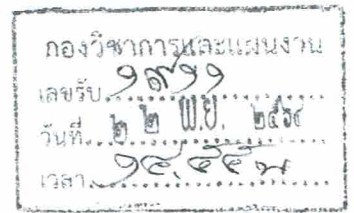 กองวิชาการและแผนงาน
เลขรับ ๑๙๑๑
วันที่ ๒๒ พ.ย. ๒๕๖๔
เวลา ๑๔.๕๕ น